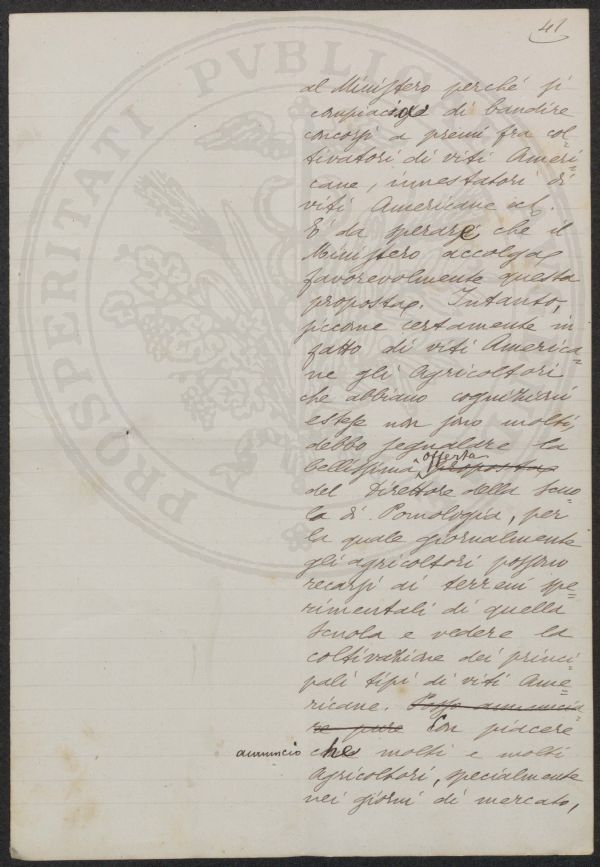 41
al Ministero perché si
compiaccia di bandire
concorsi a premi fra col=
tivatori di viti Ameri=
cane, innestatori di
viti Americane ecc.
È da sperare che il
Ministero accolga
favorevolmente questa
proposta. Intanto,
siccome certamente in
fatto di viti America=
ne gli Agricoltori
che abbiano cognizioni
estese non sono molti,
debbo segnalare la
bellissima offerta proposta
del Direttore della Scuo=
la di Pomologia, per
la quale giornalmente
gli agricoltori possono
recarsi ai terreni spe=
rimentali di quella
Scuola e vedere la
coltivazione dei princi=
pali tipi di viti Ame=
ricane. Posso annuncia=
re pure Con piacere
annuncio che molti e molti
Agricoltori, specialmente
nei giorni di mercato,
PROSPERITATI PVBLICAE